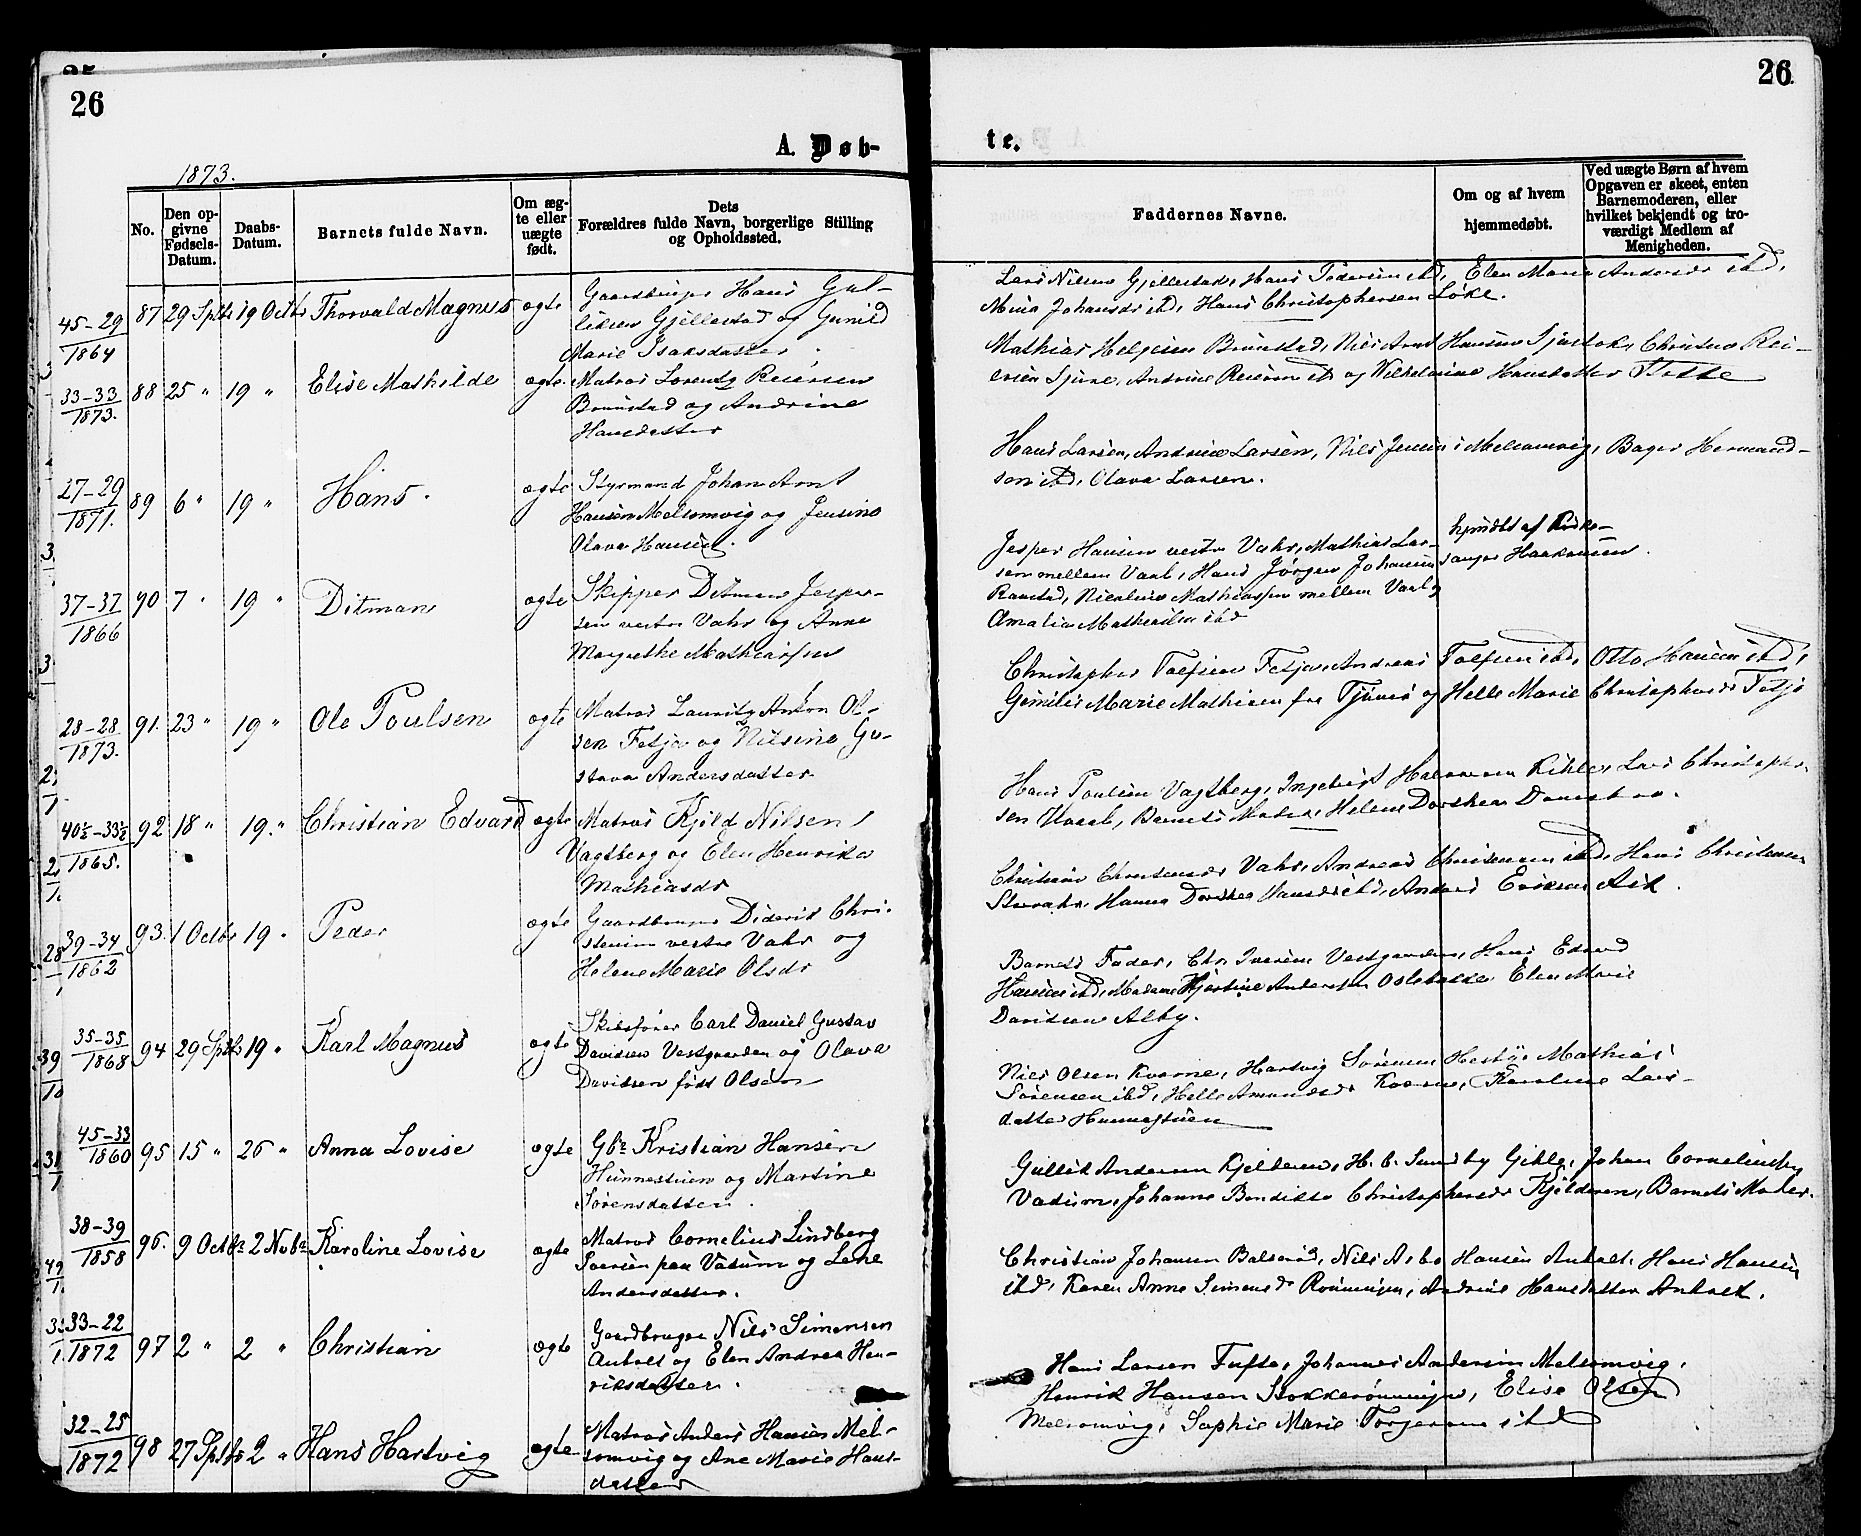 26
A. Døb-
1873.
No.
Den op-
givne
Fødsels-
Datum.
Daabs-
Datum.
Barnets fulde Navn.
Om æg-
te eller
uægte
født.
Dets
Forældres fulde Navn, borgerlige Stilling
og Opholdssted.
45-29
1864
87 29 Sptbr 19 Octbr Thorvald Magnus ægte Gaardbruger Hans Gul-
liksen Gjellestad og Gunild
Marie Isaksdatter
33-33
1873.
88 25 " 19 " Elise Mathilde ægte Matros Lorentz Reiersen
Brunstad og Andrine
Hansdatter
27-29
1871.
89 6 " 19 " Hans. ægte Styrmand Johan Arnt
Hansen Melsomvig og Jensine
Olava Hansen.
37-37
1866
90 7 " 19 " Ditman ægte Skipper Ditman Jesper-
sen vestre Vahr og Anne
Margrethe Mathiassen
28-28
1873.
91. 23 " 19 " Ole Poulsen ægte Matros Lauritz Anton Ol-
sen Fetja og Nilsine Gu-
stava Andersdatter
40½-33½
1865.
92 18 " 19. " Christian Edvard ægte Matros Kjeld Nilsen
Vagtberg og Elen Henrikke
Mathiasdr
39-34
1862
93. 1 Octbr 19 " Peder ægte Gaardbruger Diderik Chri-
stensen vestre Vahr og
Helene Marie Olsdr
35-35
1868
94 29 Sptbr 19 " Karl Magnus ægte Skibsfører Carl Daniel Gustav
Davidsen Vestgaarden og Olava
Davidsen født Olsen
45-33
1860
95 15 " 26 " Anna Lovise ægte Gbr Kristian Hansen
Hunnestuen og Martine
Sørensdatter.
38-39
1858
96. 9 Octbr 2 Novbr Karoline Lovise ægte Matros Cornelius Lindberg
Iversen paa Vadum og Lene
Andersdatter.
33-22
1872
97 2 " 2 " Christian ægte Gaardbruger Nils Simensen
Auholt og Elen Andrea Hen-
riksdatter.
32-25
1872
98 27 Sptbr 2 " Hans Hartvig ægte Matros Anders Hansen Mel-
somvig og Ane Marie Hans-
datter
26
te.
Faddernes Navne.
Om og af hvem
hjemmedøbt.
Ved uægte Børn af hvem
Opgaven er skeet, enten
Barnemoderen, eller
hvilket bekjendt og tro-
værdigt Medlem af
Menigheden.
Lars Nilsen Gjellestad, Hans Pedersen ibd, Elen Marie Andersdr ibd,
Mina Johansdr ibd, Hans Christophersen Løke.
Mathias Helgesen Brunstad, Nils Arnt Hansen, Christine Rei-
ersen, Andrine Reiersen ibd og Vilhelmine Hansdatter
Hans Larsen, Andrine Larsen, Nils Jensen i Melsomvig, Bager Hermand-
sen ibd, Olava Larsen.
Jesper Hansen vestre Vahr, Mathias Lar-
sen mellem Vahl, Hans Jørgen Johansen
Ranstad, Nicoline Mathiassen mellem Vahl,
Amalia Mathiassen ibd
hjmdbt af Kirke-
sanger Haakonsen.
Christopher Tolfsen Fetja, Andreas Tolfsen ibd, Otto Hansen ibd,
Marie Mathisen fra Tjømø og Helle Marie Christophersdr Fetja
Hans Poulsen Vagtberg, Ingebret Halvorsen, Lars Christopher-
sen, Barnets Moder, Helene Dorthea
Christiane Christensdr Vahr, Andreas Christensen ibd, Hans Christensen
Storevahr, Hanna Dorthea Hansdr ibd, Anders Eriksen Ask.
Barnets Fader, Chr. Iversen Vestgaarden, Hans Edvard
Hansen ibd, Madame Kjerstine Andersen Oslebakke, Elen Marie
Davidsen Alby.
Nils Olsen Kverne, Hartvig Sørensen, Mathias
Sørensen ibd, Helle Amundsdr Kverne, Karoline Lars-
datter Hunnestuen
Gullik Andersen Kjelderen, H. C. Sundby Gihle, Johan Corneliusen
Vadum, Johanne Bendikte Christophersdr Kjelderen, Barnets Moder.
Christian Johansen Balserød, Nils Hansen Auholt, Hans Hansen
ibd, Karen Anne Simensd Rønningen, Andrine Hansdatter Auholt.
Hans Larsen Tufte, Johannes Andersen Melsomvig,
Henrik Hansen Stokkerønningen, Elise Olsen
Melsomvig, Sophie Marie Torgersen ibd